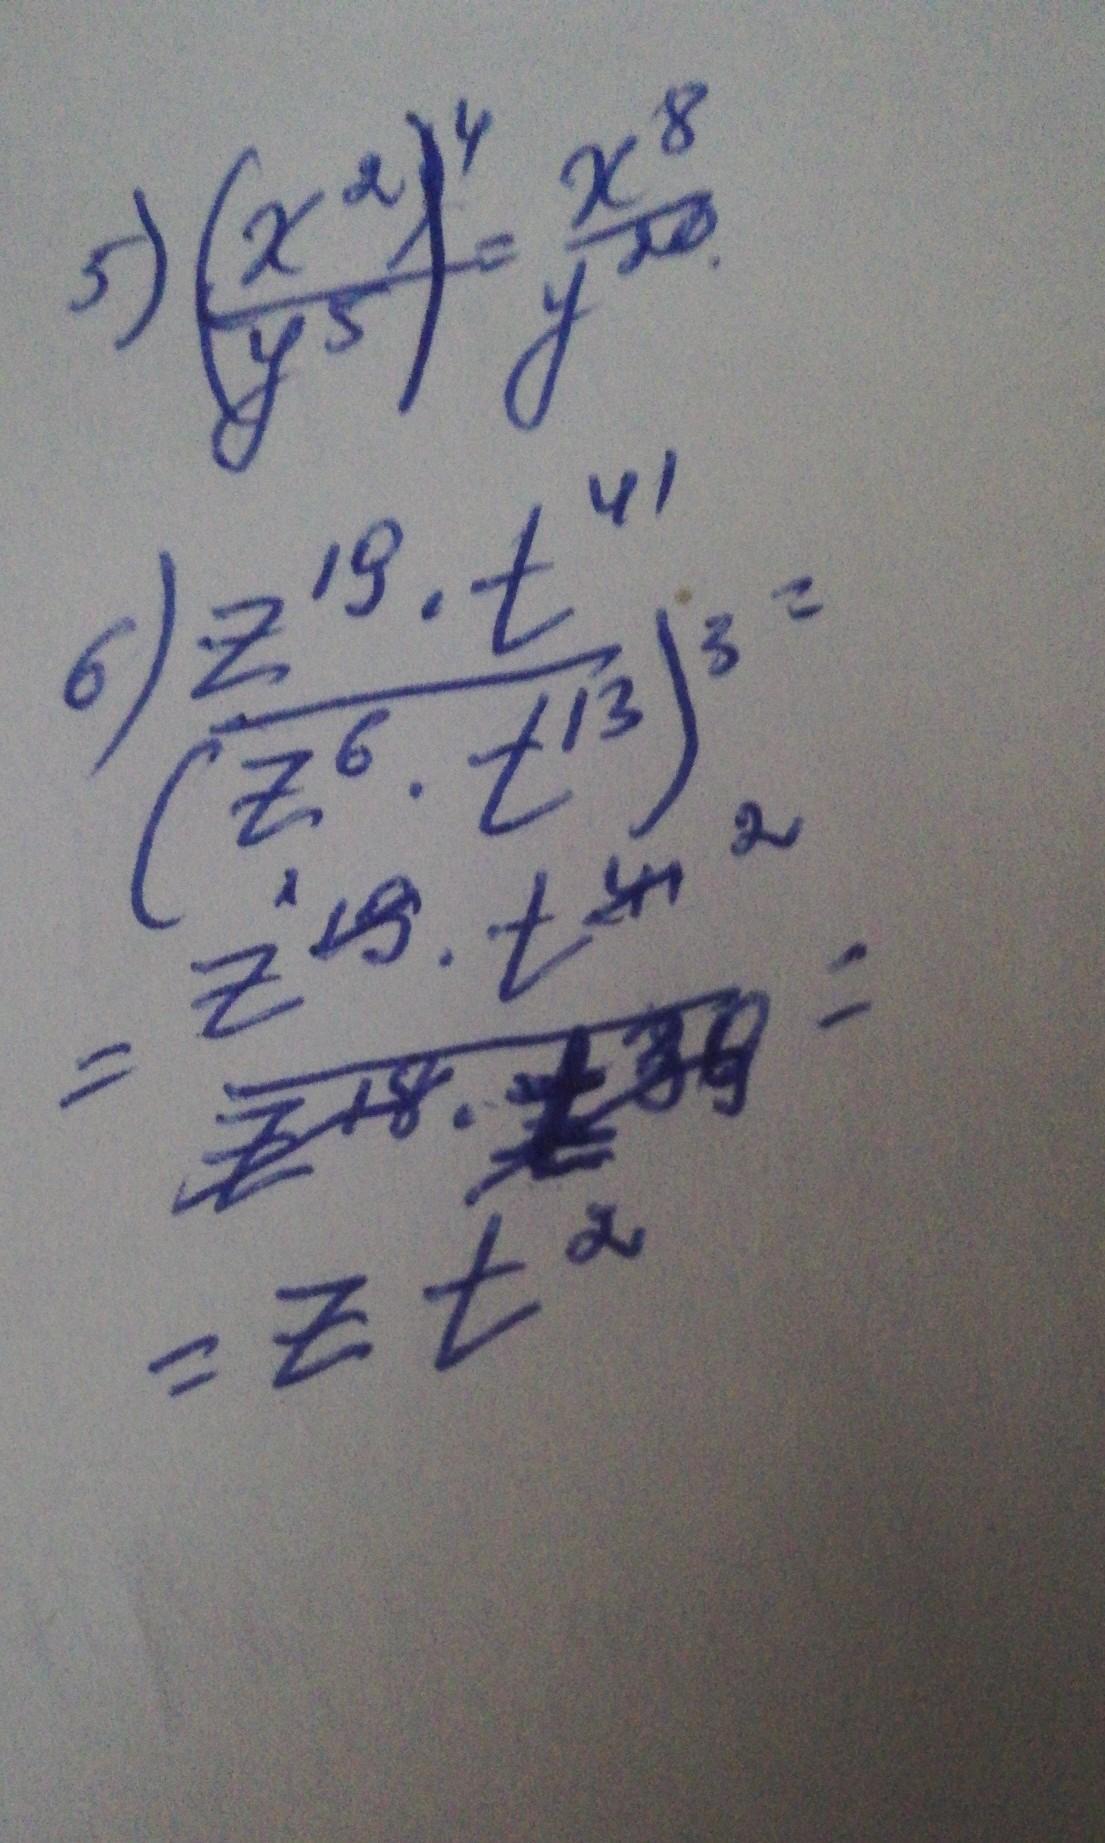 5) (x²/y⁵)⁴ = x⁸/y²⁰.
6) z¹⁹ · t⁴¹ / (z⁶ · t¹³)³ =
= z¹⁹ ¹ · t⁴¹ ² / z¹⁸ · t³⁹ =
= z t²